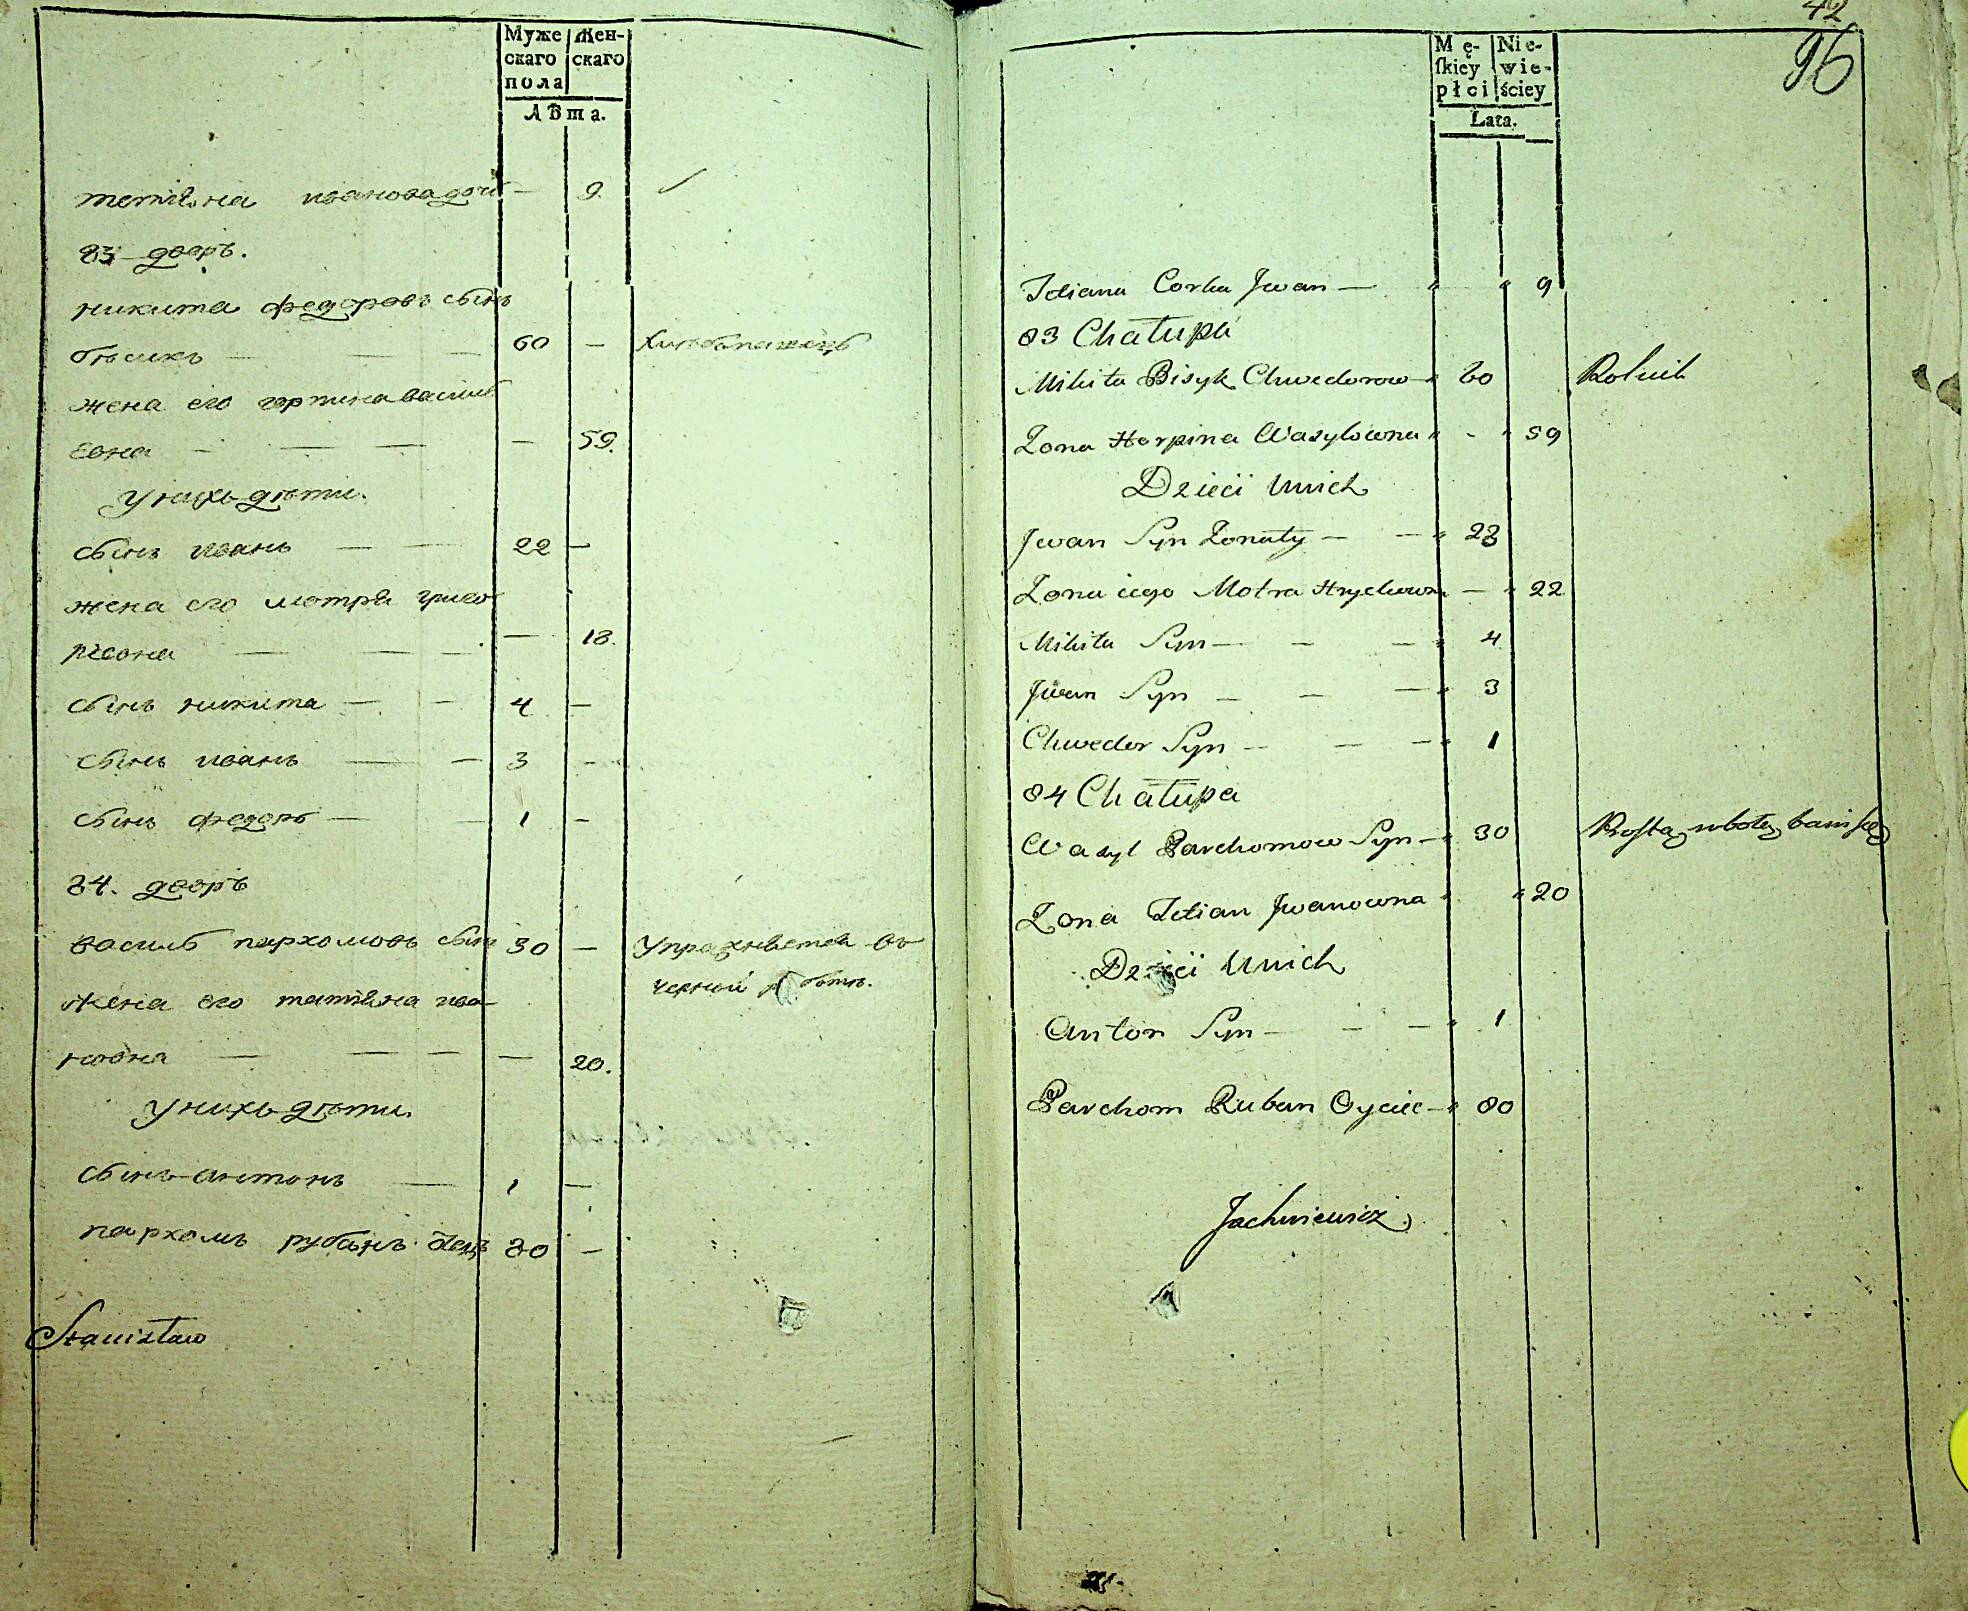 Муже
скаго
пола
Жен-
скаго
Лѣта.
тетіяна иванова дочь — 9.
83 дворъ.
никита федоровъ сынъ
бысикъ — — — 60 — хлебопашецъ
жена его горпина васил
евна — — — — 59.
у нихъ дѣти.
сынъ иванъ — — 22 —
жена его мотря григо
рьевна — — — — 18.
сынъ никита — — 4 —
сынъ иванъ — — 3 —
сынъ федоръ — — 1 —
84. дворъ
василь пархомовъ сынъ 30 — упражняется въ
черной работѣ.
жена его татіяна ива-
новна — — — — 20.
у нихъ дѣти.
сынъ антонъ — 1 —
пархомъ рубанъ отецъ 80 —
Stanisław
42
96
Mę-
skiey
płci
Nie-
wie-
ściey
Lata.
Tetiana Corka Jwan — 9
83 Chałupa
Mikita Bisyk Chwedorow 60 Rolnik
Zona Horpina Wasylowna - 59
Dzieci Unich
Jwan Syn Zonaty — — 23
Zona iego Motra Hrychorow — 22
Mikita Syn — — — 4
Jwan Syn — — — 3
Chwedor Syn — — — 1
84 Chałupa
Wasyl Parchomow Syn — 30 Prostą robotą bawi się
Zona Tetian Jwanowna 20
Dzieci Unich
Anton Syn — — — 1
Parchom Ruban Oyciec — 80
Jachniewicz